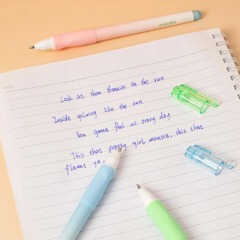 Look at them Bonnies on the run
Inside gaining like the sun
You gonna feel us every day
This that pretty girl mantra, this that
flaunt ya